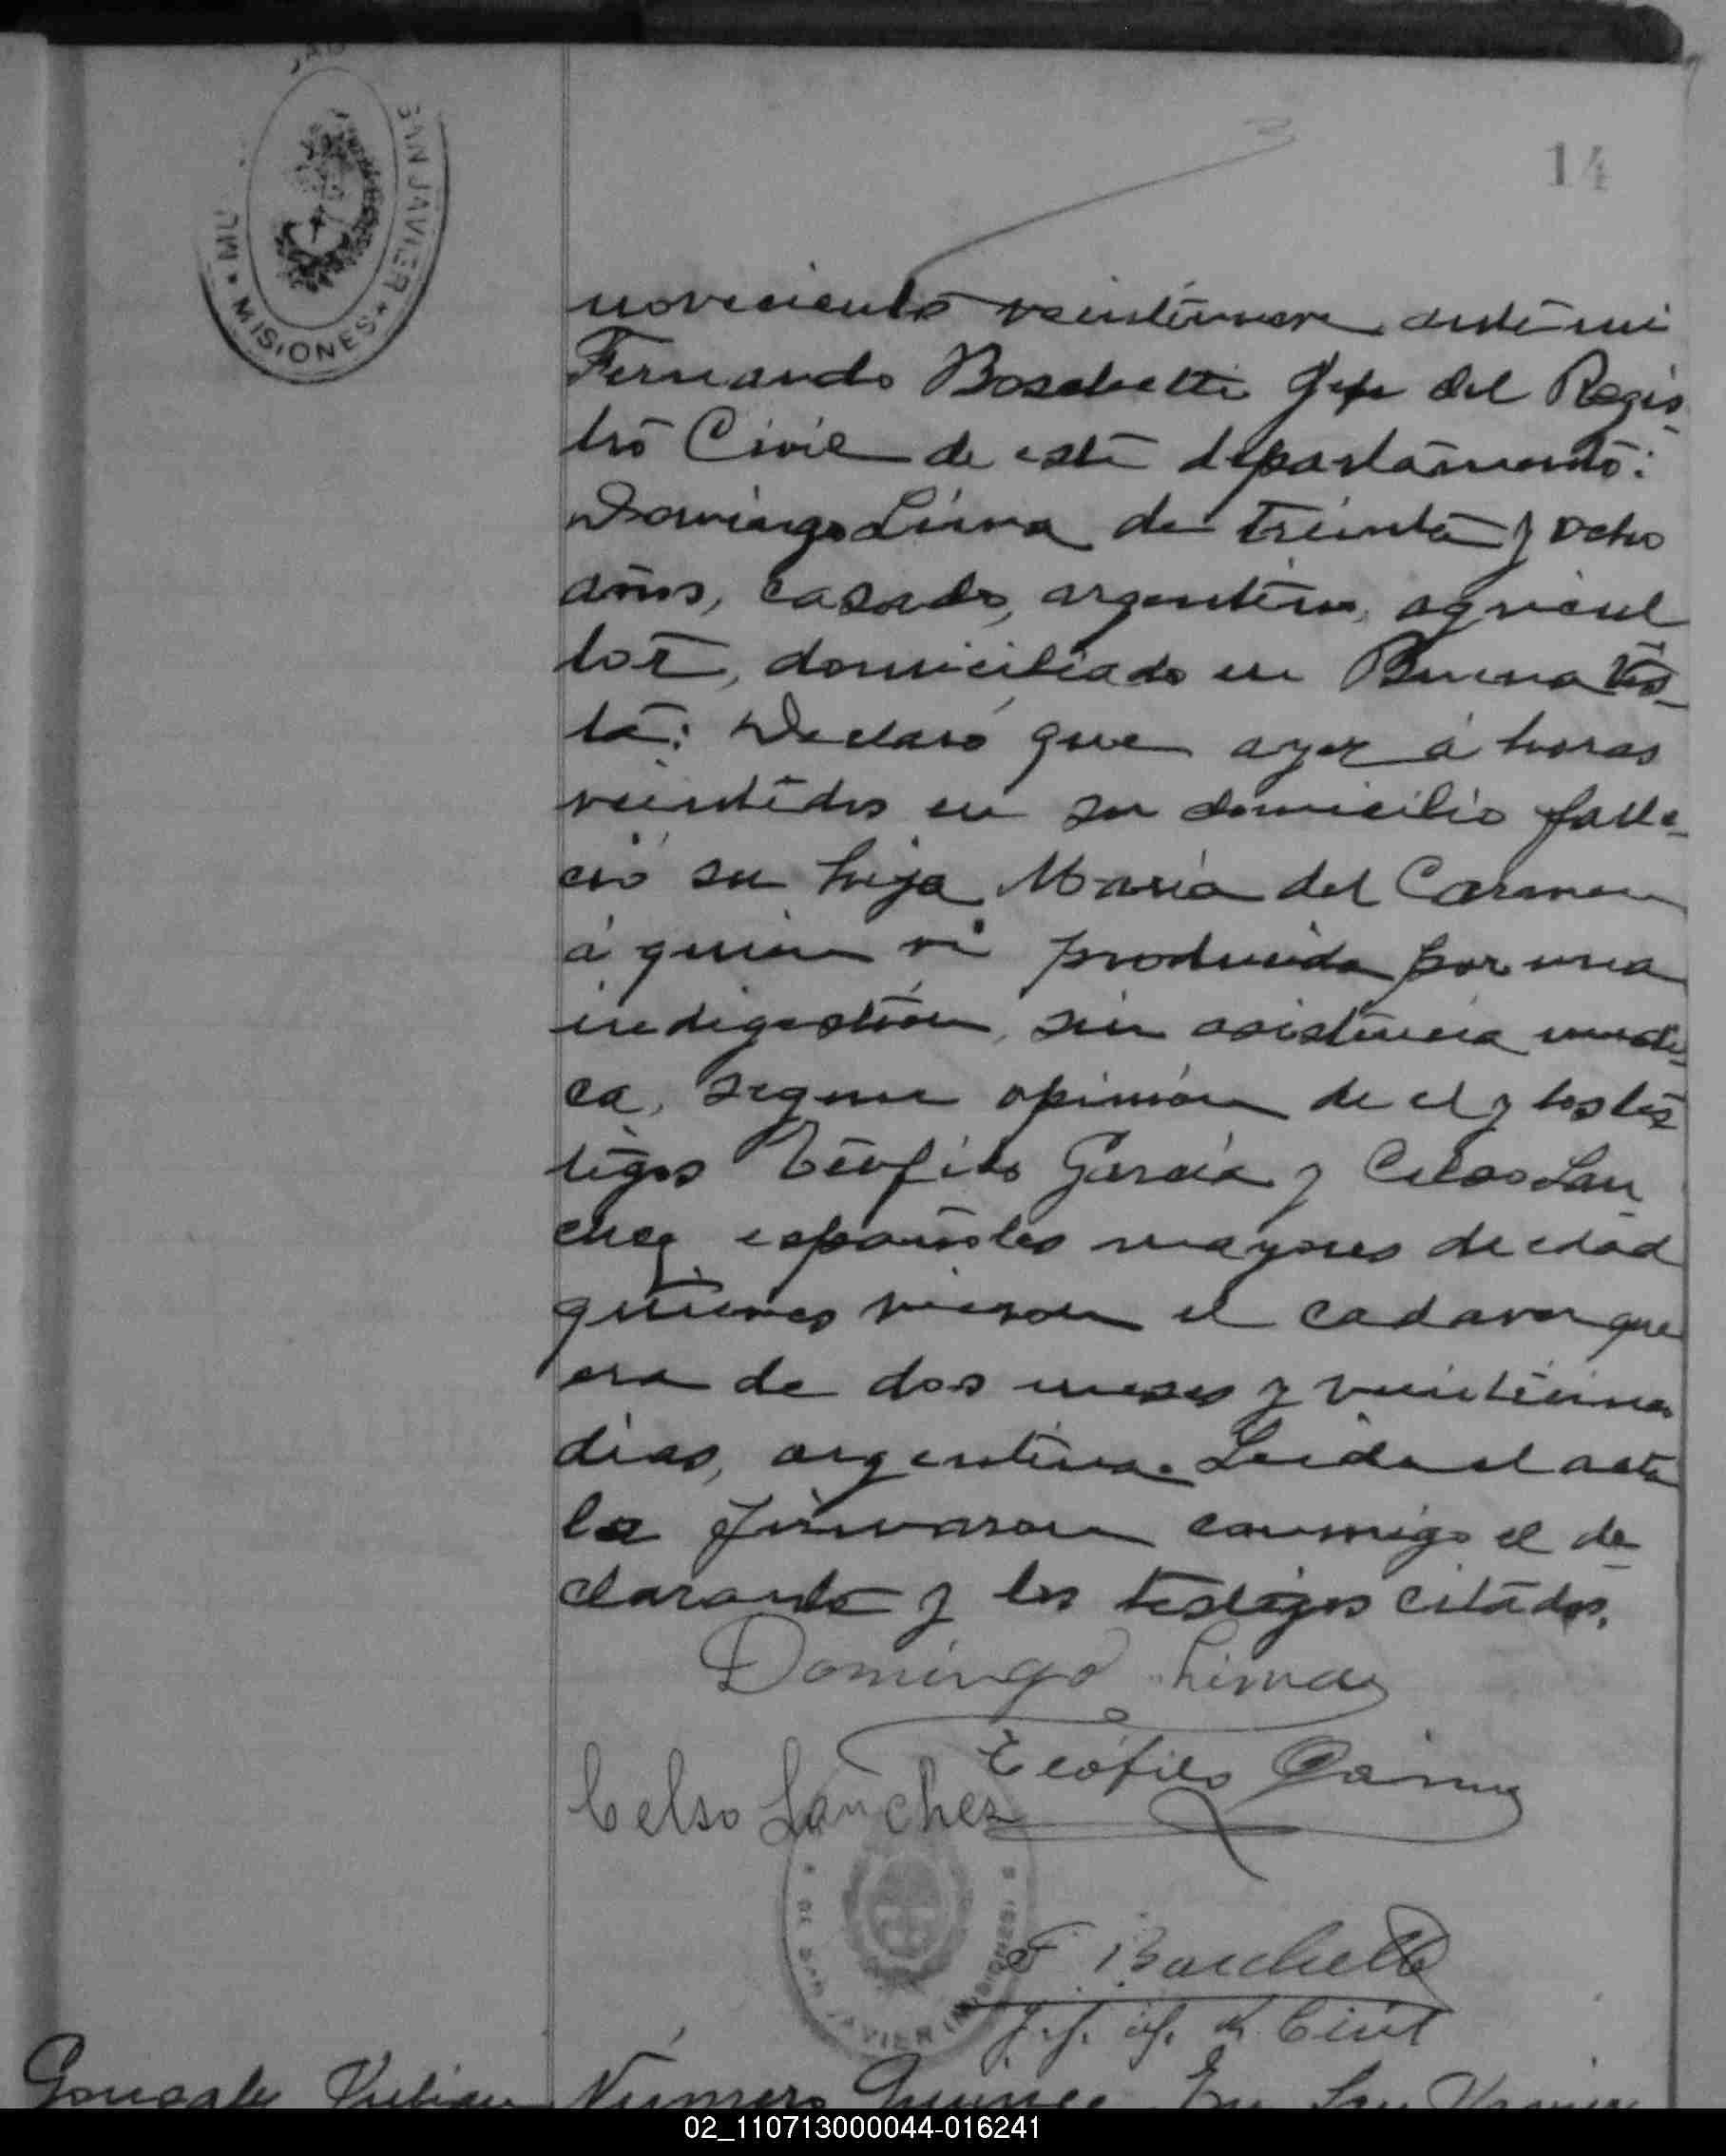 SAN JAVIER
★ MISIONES ★
14
novecientos veintinueve ante mi
Fernando Boschetti Jefe del Regis-
tro Civil de este departamento:
Domingo Lima de treinta y ocho
años, casado, argentino, agricul
tor, domiciliado en Buena Vis-
ta: Declaró que ayer á horas
veintidos en su domicilio falle-
ció su hija María del Carmen
á quien vi producida por una
indigestión, sin asistencia medi-
ca, segun opinión de el y los tes-
tigos Teófilo García y Celso San-
chez españoles mayores de edad
quienes vieron el cadaver que
era de dos meses y veintiun
dias, argentina. Leida el acta
la firmaron conmigo el de-
clarante y los testigos citados.
Domingo Lima
Teófilo
Celso Sanchez
DE SAN JAVIER (MISIONES)
F Boschetti
Civil
Gonzalez Julian
Número Quince. En San Javier
02_110713000044-016241